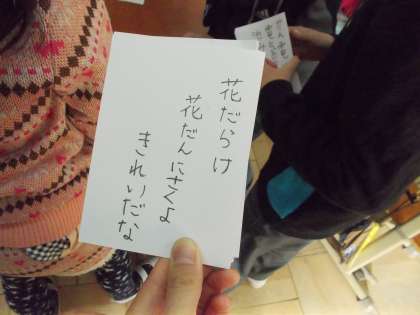 花だらけ
花だんにさくよ
きれいだな